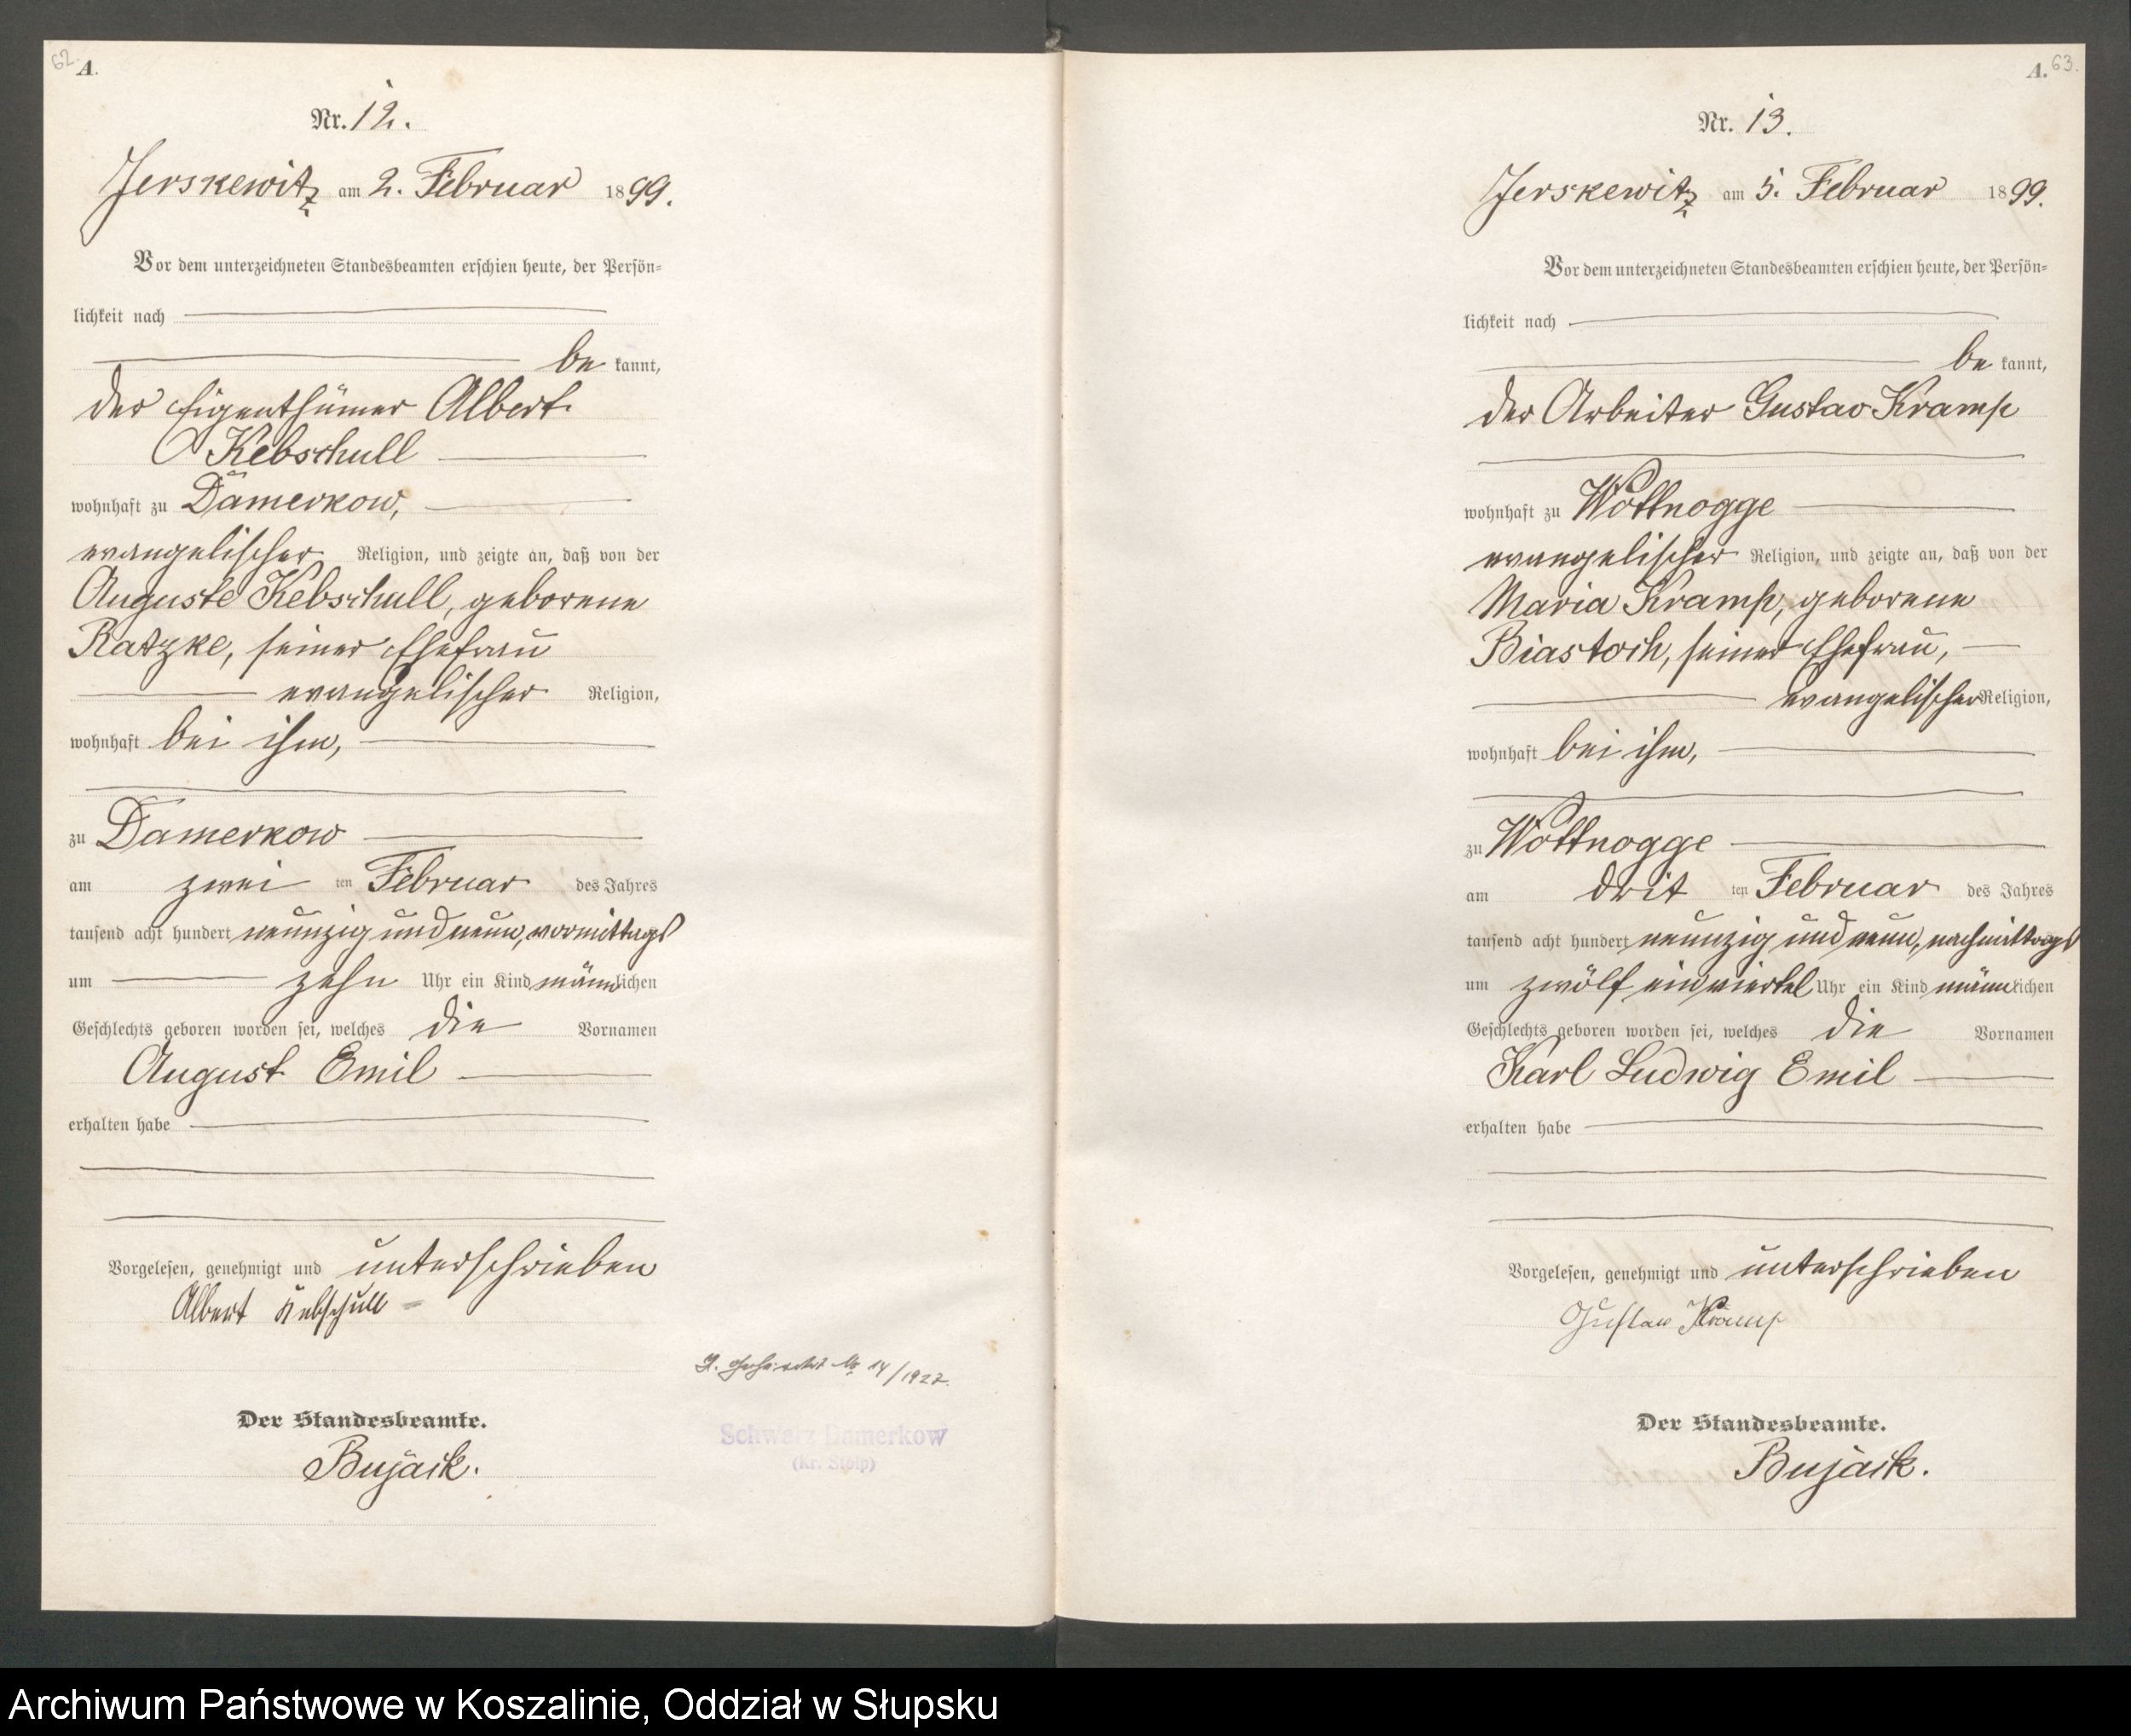 62.
A.
Nr. 12.
Jerskewitz am 2. Februar 1899.
Vor dem unterzeichneten Standesbeamten erschien heute, der Persön-
lichkeit nach
be kannt,
der Eigenthümer Albert
Kebschull
wohnhaft zu Damerkow,
evangelischer Religion, und zeigte an, daß von der
Auguste Kebschull, geborene
Ratzke, seiner Ehefrau
evangelischer Religion,
wohnhaft bei ihm,
zu Damerkow
am zwei ten Februar des Jahres
tausend acht hundert neunzig und neun, vormittags
um zehn Uhr ein Kind männlichen
Geschlechts geboren worden sei, welches die Vornamen
August Emil
erhalten habe
Vorgelesen, genehmigt und unterschrieben
Albert Kebschull
Der Standesbeamte.
Bujack.
14/1927.
Schwarz Damerkow
(Kr. Stolp)
A. 63.
Nr. 13.
Jerskewitz am 5. Februar 1899.
Vor dem unterzeichneten Standesbeamten erschien heute, der Persön-
lichkeit nach
be kannt,
der Arbeiter Gustav Kramp
wohnhaft zu Wottnogge
evangelischer Religion, und zeigte an, daß von der
Maria Kramp, geborene
Biastoch, seiner Ehefrau,
evangelischer Religion,
wohnhaft bei ihm,
zu Wottnogge
am drit ten Februar des Jahres
tausend acht hundert neunzig und neun, nachmittags
um zwölf ein viertel Uhr ein Kind männlichen
Geschlechts geboren worden sei, welches die Vornamen
Karl Ludwig Emil
erhalten habe
Vorgelesen, genehmigt und unterschrieben
Gustav Kramp
Der Standesbeamte.
Bujack.
Archiwum Państwowe w Koszalinie, Oddział w Słupsku